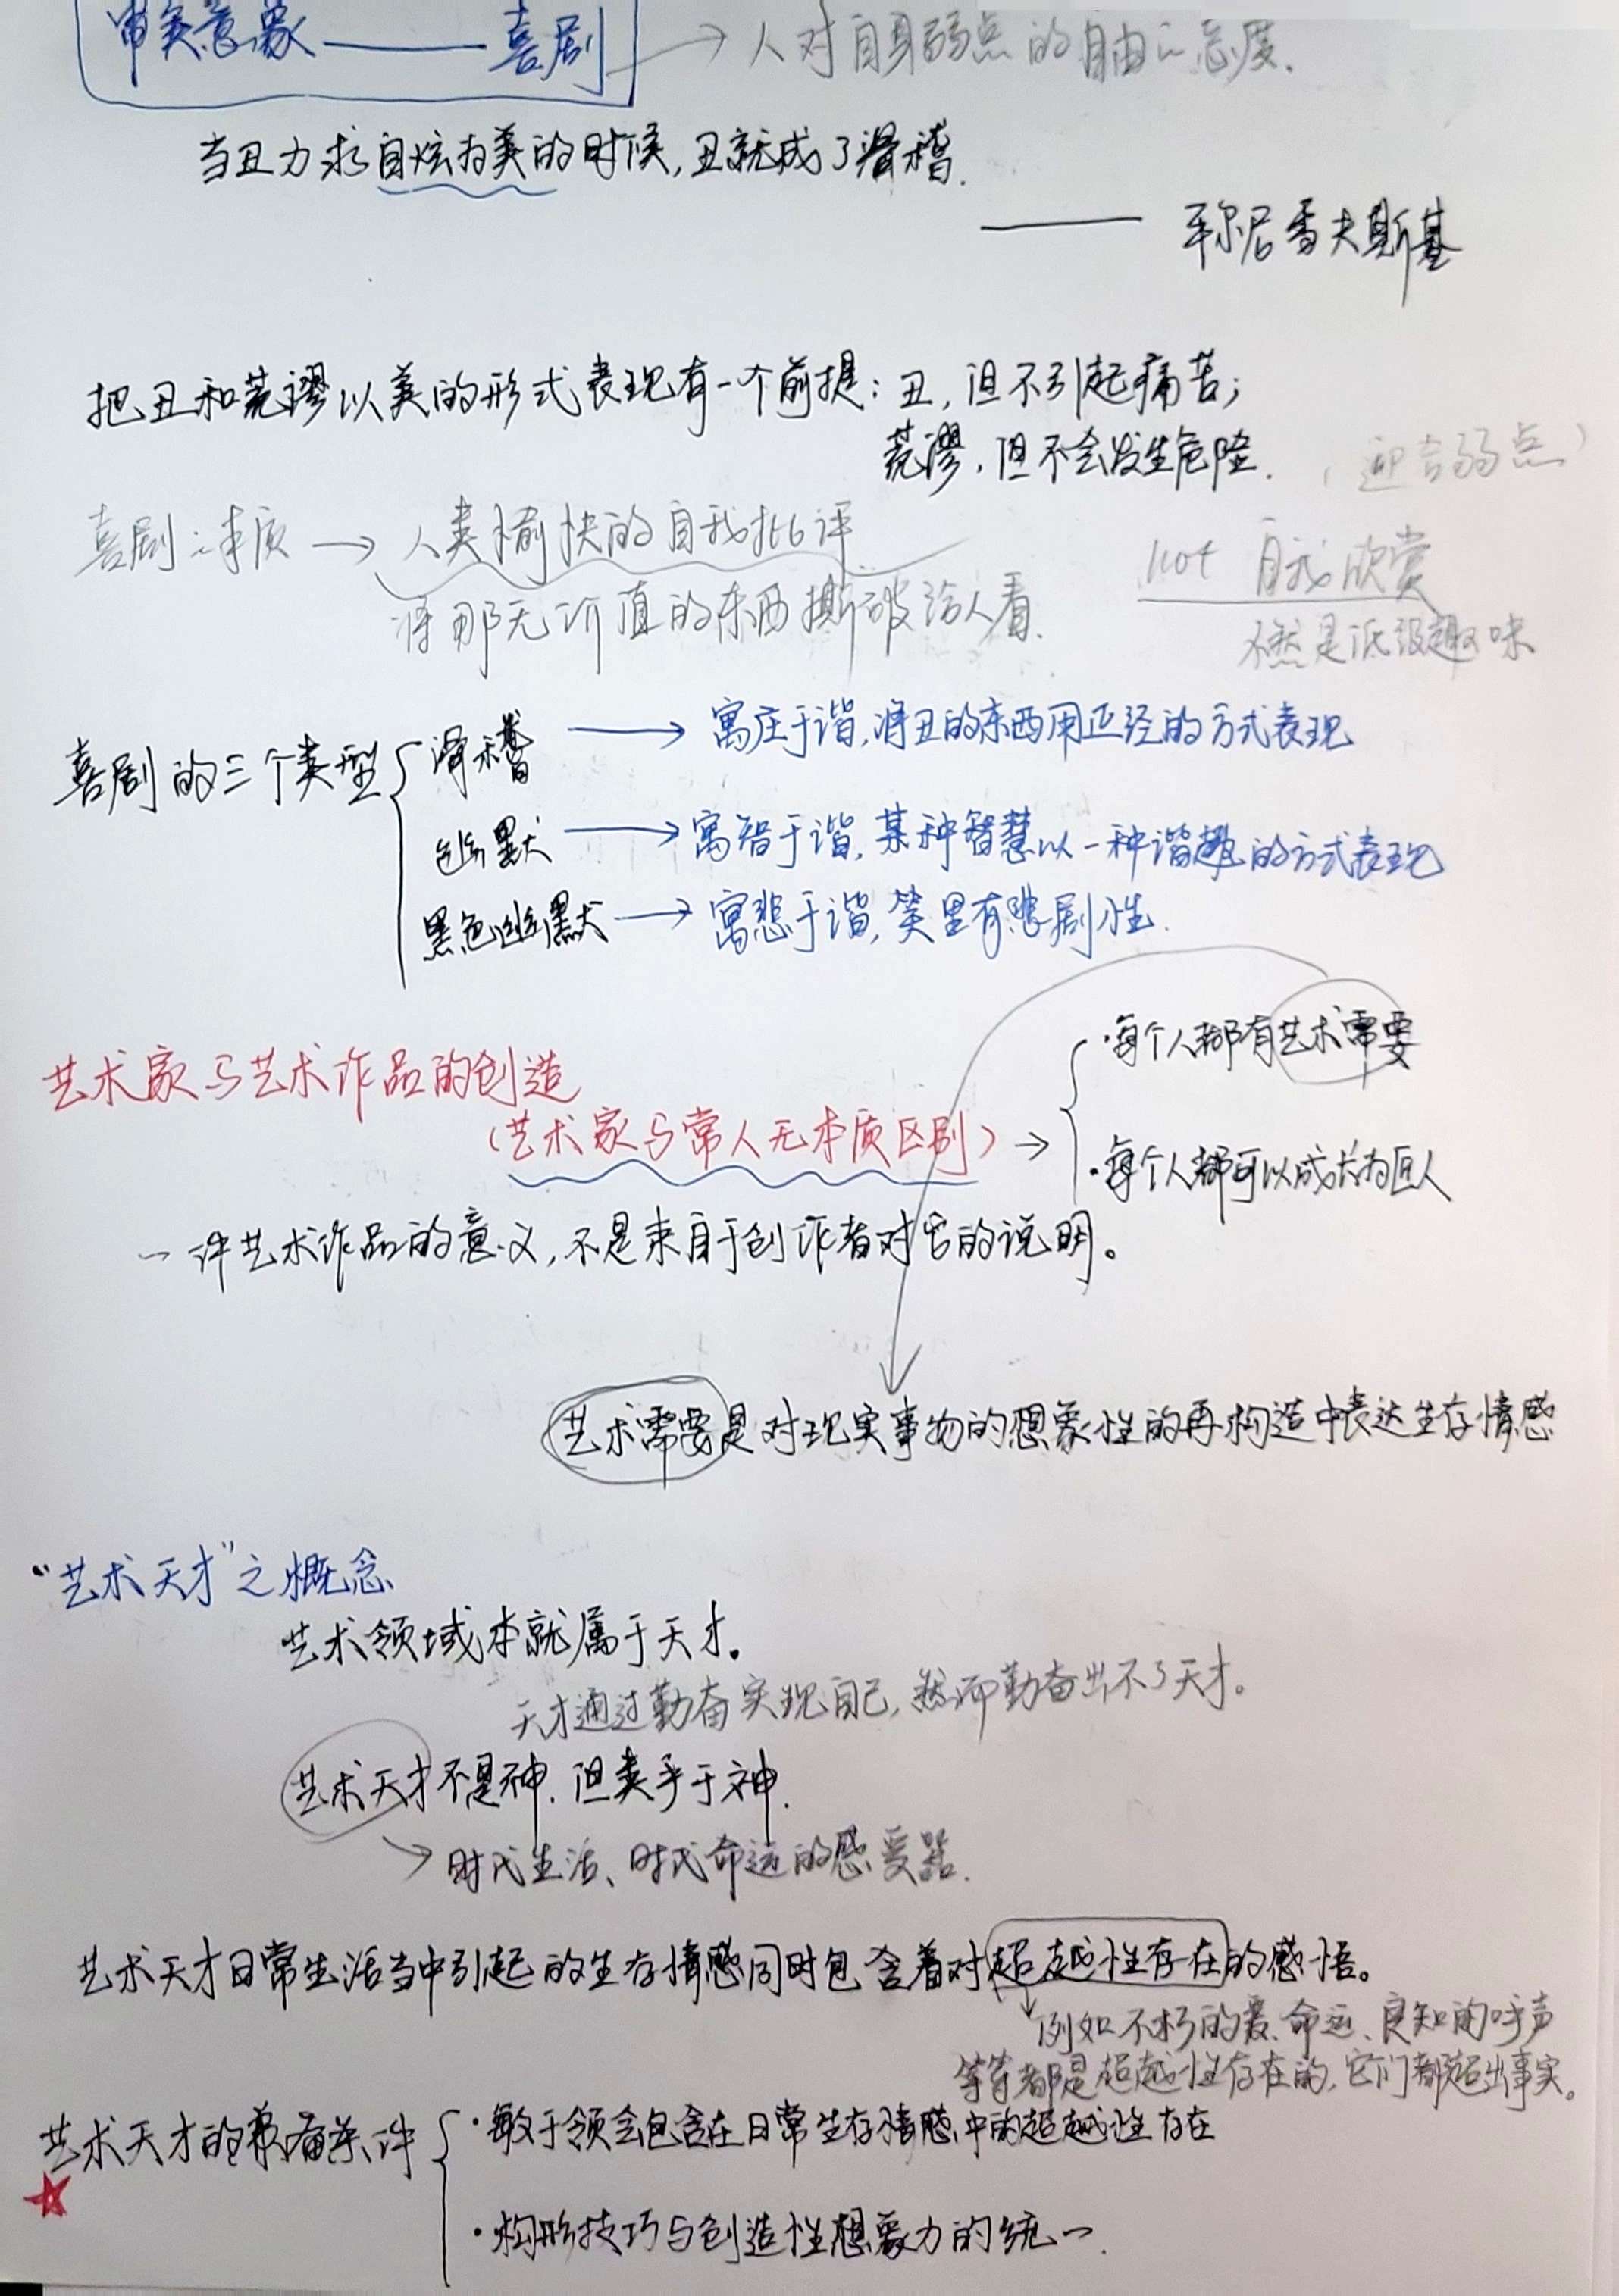 审美意象——喜剧 → 人对自身弱点的自由之态度.
当丑力求自炫为美的时候,丑就成了滑稽.
—— 车尔尼雪夫斯基
把丑和荒谬以美的形式表现有一个前提:丑,但不引起痛苦;
荒谬,但不会发生危险.
(迎合弱点)
喜剧之本质 → 人类愉快的自我批评
not 自我欣赏
将那无价值的东西撕破给人看.
不然是低级趣味
喜剧的三个类型
滑稽 → 寓庄于谐,将丑的东西用正经的方式表现
幽默 → 寓智于谐,某种智慧以一种谐趣的方式表现
黑色幽默 → 寓悲于谐,笑里有悲剧性.
艺术家与艺术作品的创造
(艺术家与常人无本质区别) →
·每个人都有艺术需要
·每个人都可以成长为匠人
一件艺术作品的意义,不是来自于创作者对它的说明。
艺术需要是对现实事物的想象性的再构造中表达生存情感
“艺术天才”之概念
艺术领域本就属于天才。
天才通过勤奋实现自己,然而勤奋出不了天才。
艺术天才不是神.但类乎于神.
→ 时代生活、时代命运的感受器.
艺术天才日常生活当中引起的生存情感同时包含着对超越性存在的感悟。
例如不朽的爱、命运、良知的呼声
等等都是超越性存在的,它们都超出事实。
艺术天才的条件
·敏于领会包含在日常生存情感中的超越性存在
·构形技巧与创造性想象力的统一.